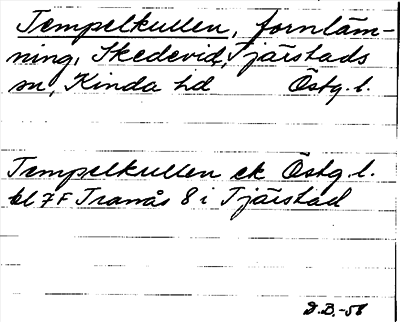 Tempelkullen, fornläm-
ning, Skedevid, Tjärstads
sn, Kinda hd Östg. l.
Tempelkullen ek Östg. l.
bl 7F Tranås 8 i Tjärstad
D.B.-58